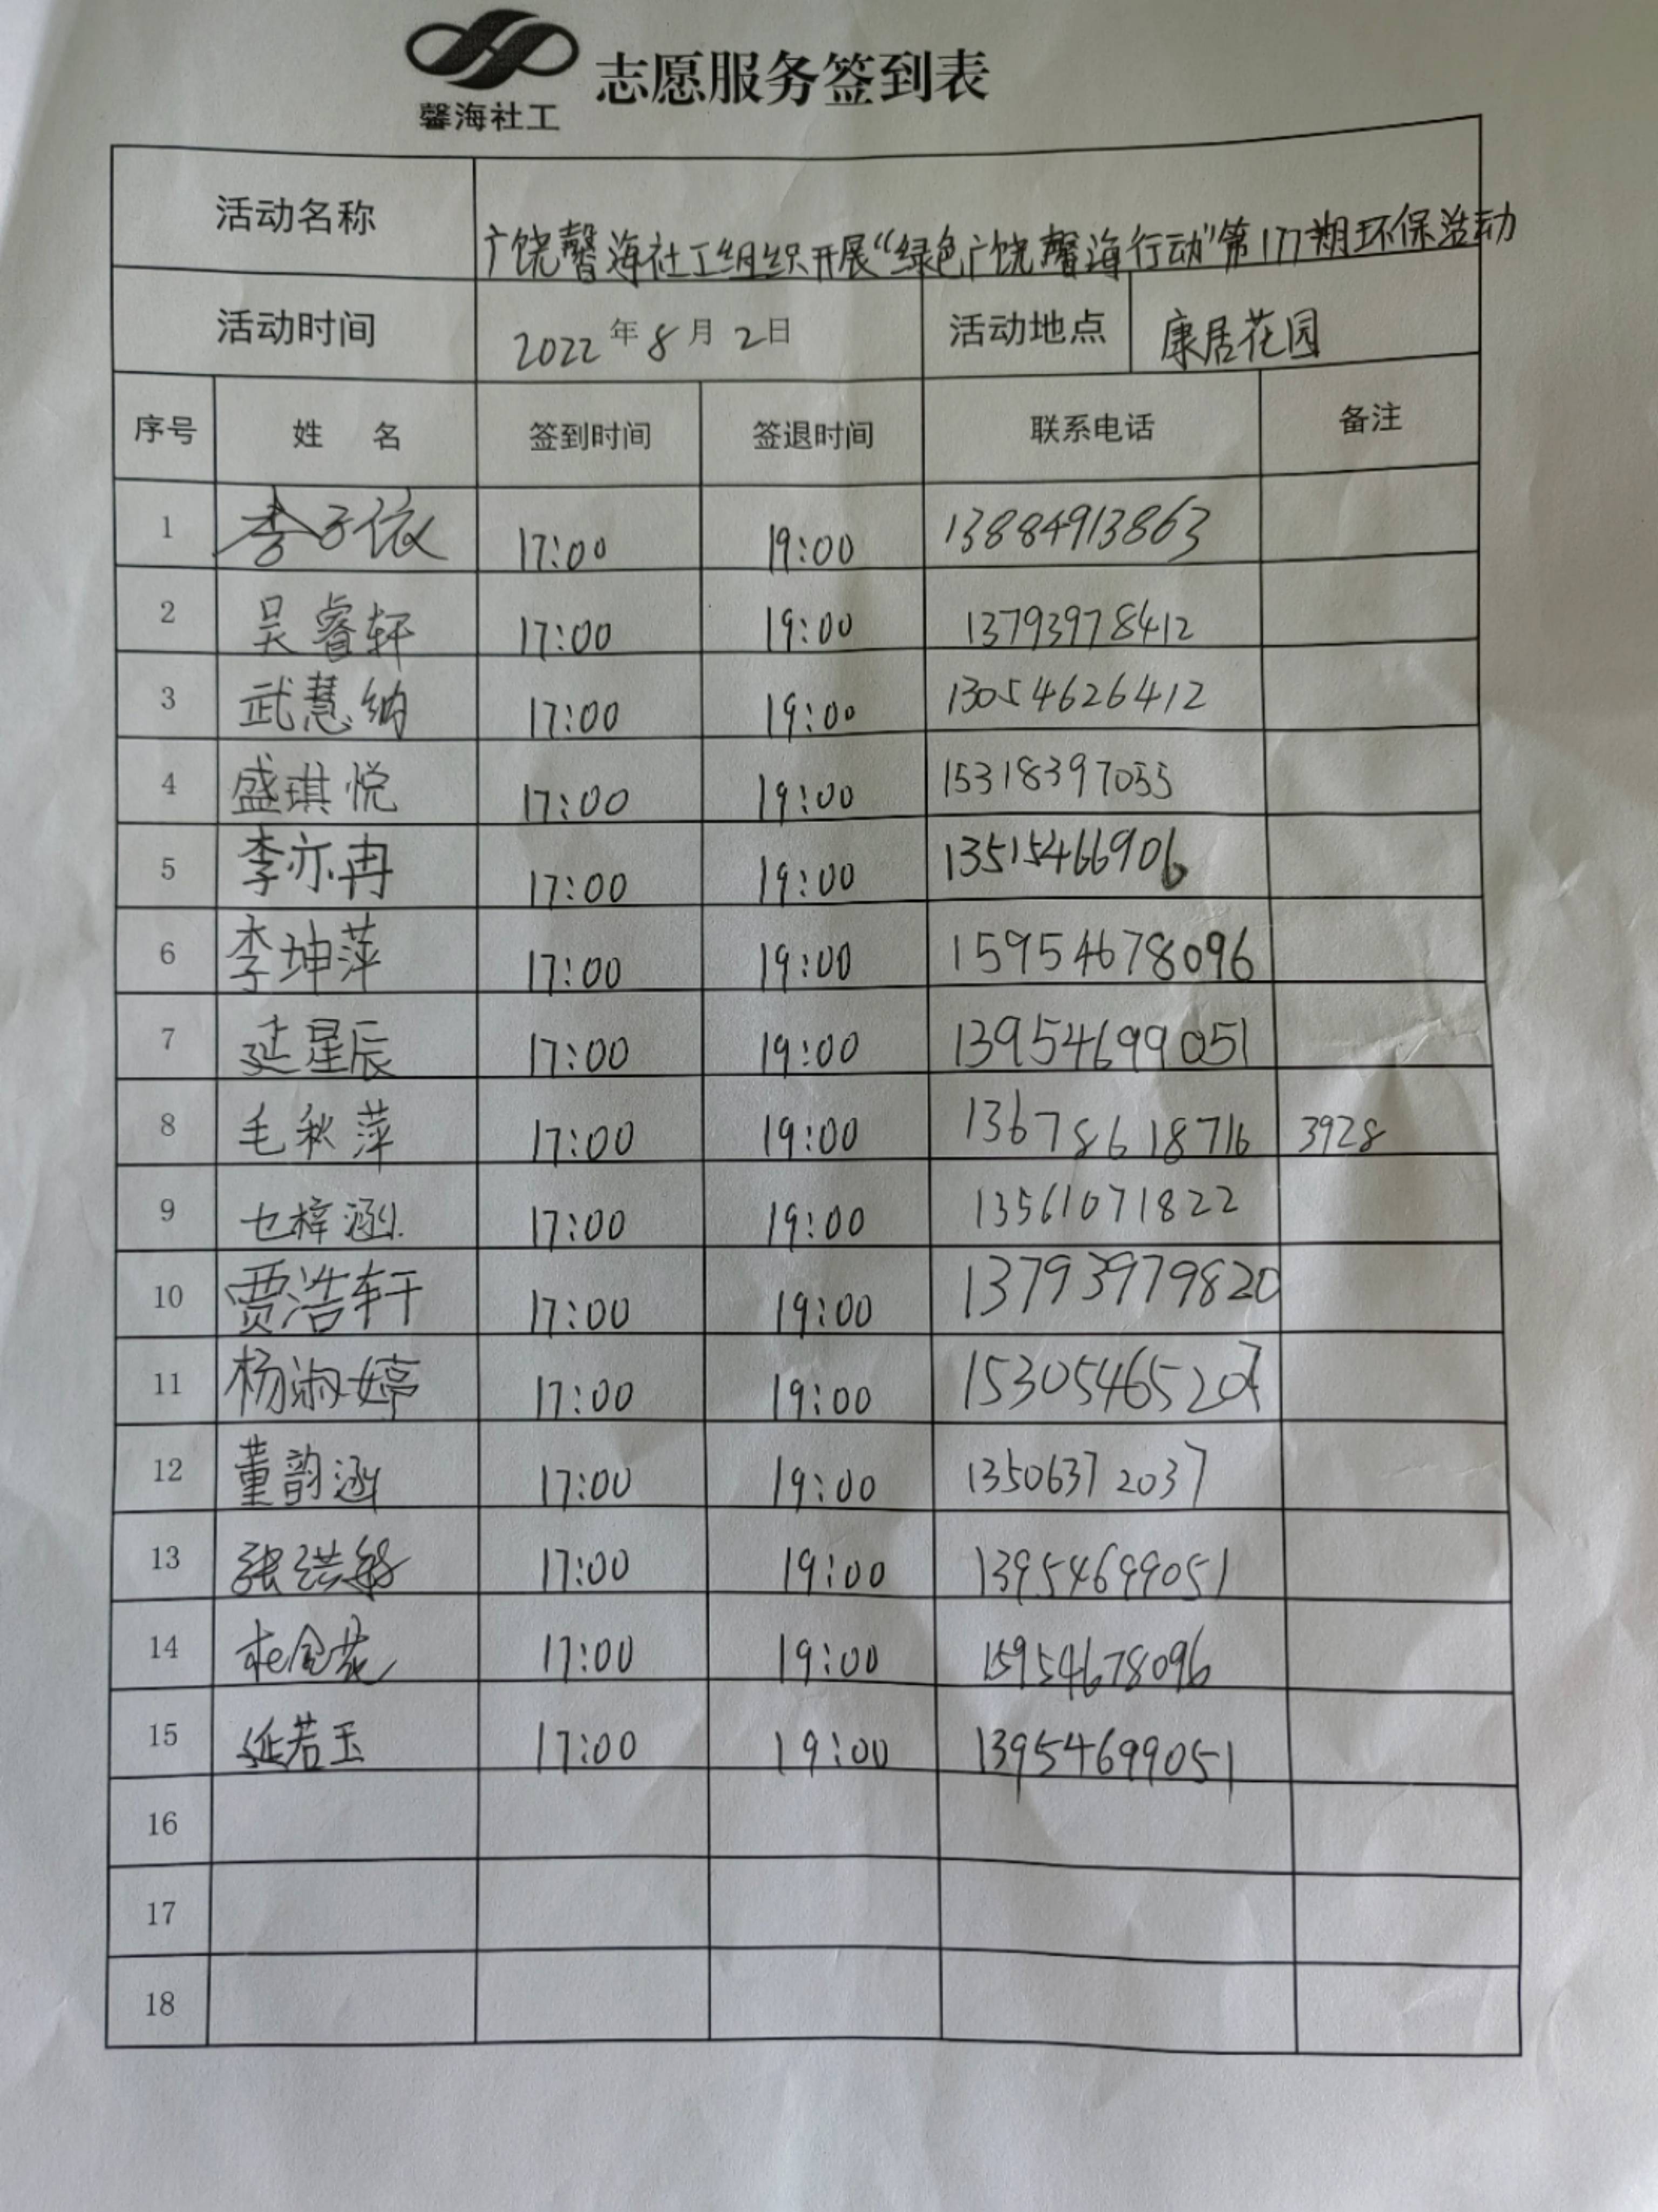 馨海社工
志愿服务签到表
活动名称 广饶馨海社工组织开展“绿色广饶馨海行动”第177期环保活动
活动时间 2022年8月2日 活动地点 康居花园
序号 姓 名 签到时间 签退时间 联系电话 备注
1 李子依 17:00 19:00 13884913863
2 吴睿轩 17:00 19:00 13793978412
3 武慧纳 17:00 19:00 13054626412
4 盛琪悦 17:00 19:00 15318397055
5 李亦冉 17:00 19:00 13515466906
6 李坤萍 17:00 19:00 15954678096
7 延星辰 17:00 19:00 13954699051
8 毛秋萍 17:00 19:00 13678618716 3928
9 梓涵 17:00 19:00 13561071822
10 贾浩轩 17:00 19:00 13793979820
11 杨淑婷 17:00 19:00
12 董韵涵 17:00 19:00 13506372037
13 张洪敏 17:00 19:00 13954699051
14 17:00 19:00 15954678096
15 延若玉 17:00 19:00 13954699051
16
17
18